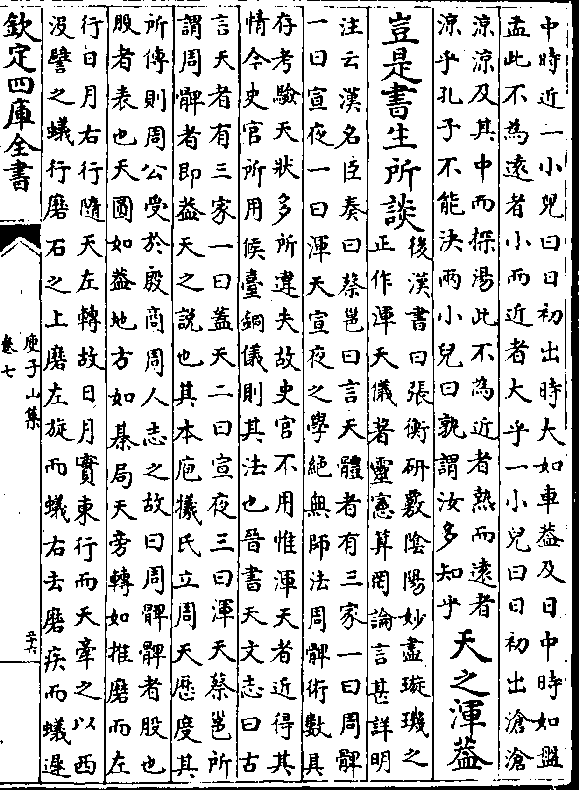 中時近一小兒曰日初出時大如車葢及日中時如盤
盂此不為遠者小而近者大乎一小兒曰日初出滄滄
涼涼及其中而探湯此不為近者熱而遠者
涼乎孔子不能決兩小兒曰孰謂汝多知乎
天之渾葢
豈是書生所談
後漢書曰張衡研覈陰陽妙盡璇璣之
正作渾天儀著靈憲算罔論言甚詳明
注云漢名臣奏曰蔡邕曰言天體者有三家一曰周髀
一曰宣夜一曰渾天宣夜之學絕無師法周髀術數具
存考驗天狀多所違失故史官不用惟渾天者近得其
情今史官所用候臺銅儀則其法也晉書天文志曰古
言天者有三家一曰葢天二曰宣夜三曰渾天蔡邕所
謂周髀者即葢天之說也其本庖犧氏立周天歷度其
所傳則周公受於殷商周人志之故曰周髀髀者股也
股者表也天圓如葢地方如棊局天旁轉如推磨而左
行日月右行隨天左轉故日月實東行而天牽之以西
沒譬之蟻行磨石之上磨左旋而蟻右去磨疾而蟻遲
欽定四庫全書
庾子山集
卷七
二十六